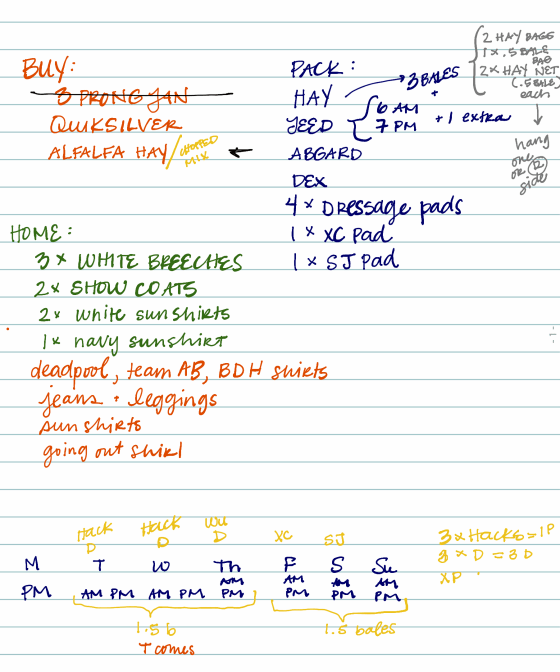 BUY:
3 PRONG FAN
QUIKSILVER
ALFALFA HAY/CHOPPED MIX
PACK:
HAY → 3 BALES
+
FEED { 6 AM
7 PM + 1 extra
ABGARD
DEX
4 × Dressage pads
1 × XC Pad
1 × SJ Pad
2 HAY BAGS
1 × .5 BALE BAG
2 × HAY NET
(.5 BALE)
each
hang
one
or 2
side
HOME:
3 × WHITE BREECHES
2 × SHOW COATS
2 × white sunshirts
1 × navy sunshirt
deadpool, team AB, BDH shirts
jeans + leggings
sun shirts
going out shirt
Hack D Hack D WU D XC SJ
M T W Th F S Su
PM AM PM AM PM AM PM AM PM AM PM AM PM
1.5 b 1.5 bales
T comes
3 × Hacks = 1P
3 × D = 3D
XP